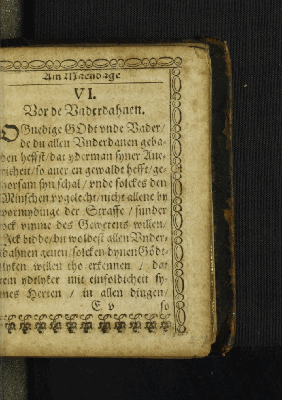 Am Maendage
VI.
Vor de Vnderdahnen.
O Gnedige GOdt vnde Vader/
de du allen Vnderdanen geba-
den heffst/ dat yderman syner Aue-
richeit/ so auer en gewaldt hefft/ ge-
horsam syn schal/ vnde solckes den
Minschen vpgelecht/ nicht allene by
vormydinge der Straffe/ sunder
ock vmme des Gewetens willen/
Ick bidde/ du woldest allen Vnder-
dahnen geuen/ solcken dynen Gödt-
lyken willen tho erkennen/ dat
een ydtlyker mit einfoldicheit sy-
nes Herten/ in allen dingen/
E v
so